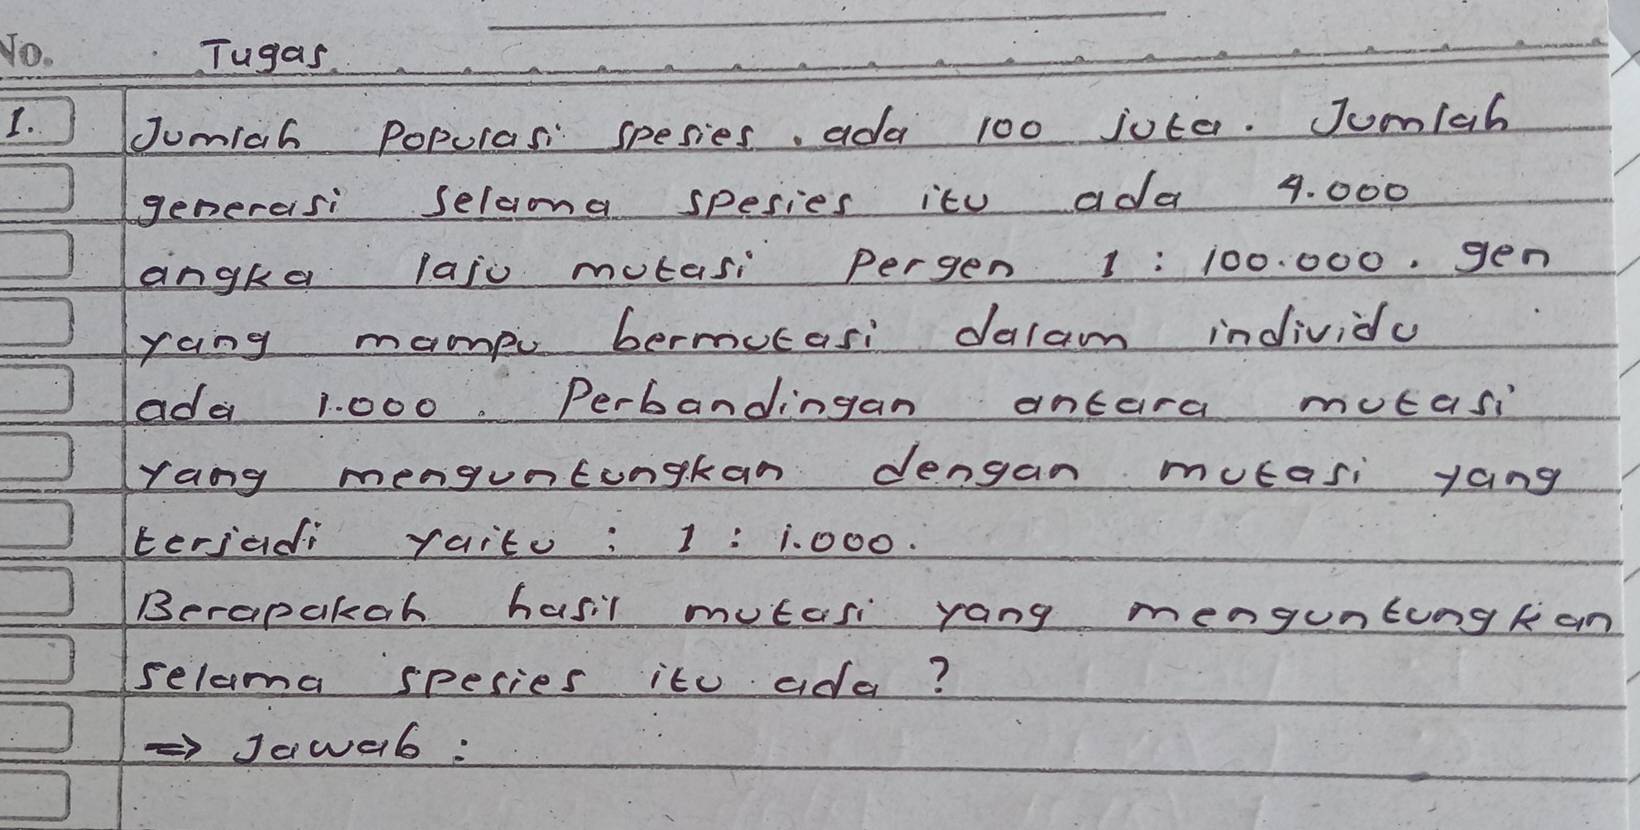 No. Tugas
1. Jumlah Populasi spesies. ada 100 juta. Jumlah
generasi selama spesies itu ada 4.000
angka laju mutasi Pergen 1 : 100.000. gen
yang mampu bermutasi dalam individu
ada 1.000. Perbandingan antara mutasi
yang menguntungkan dengan mutasi yang
terjadi yaitu : 1 : 1.000.
Berapakah hasil mutasi yang menguntungkan
selama spesies itu ada ?
⇒ Jawab :